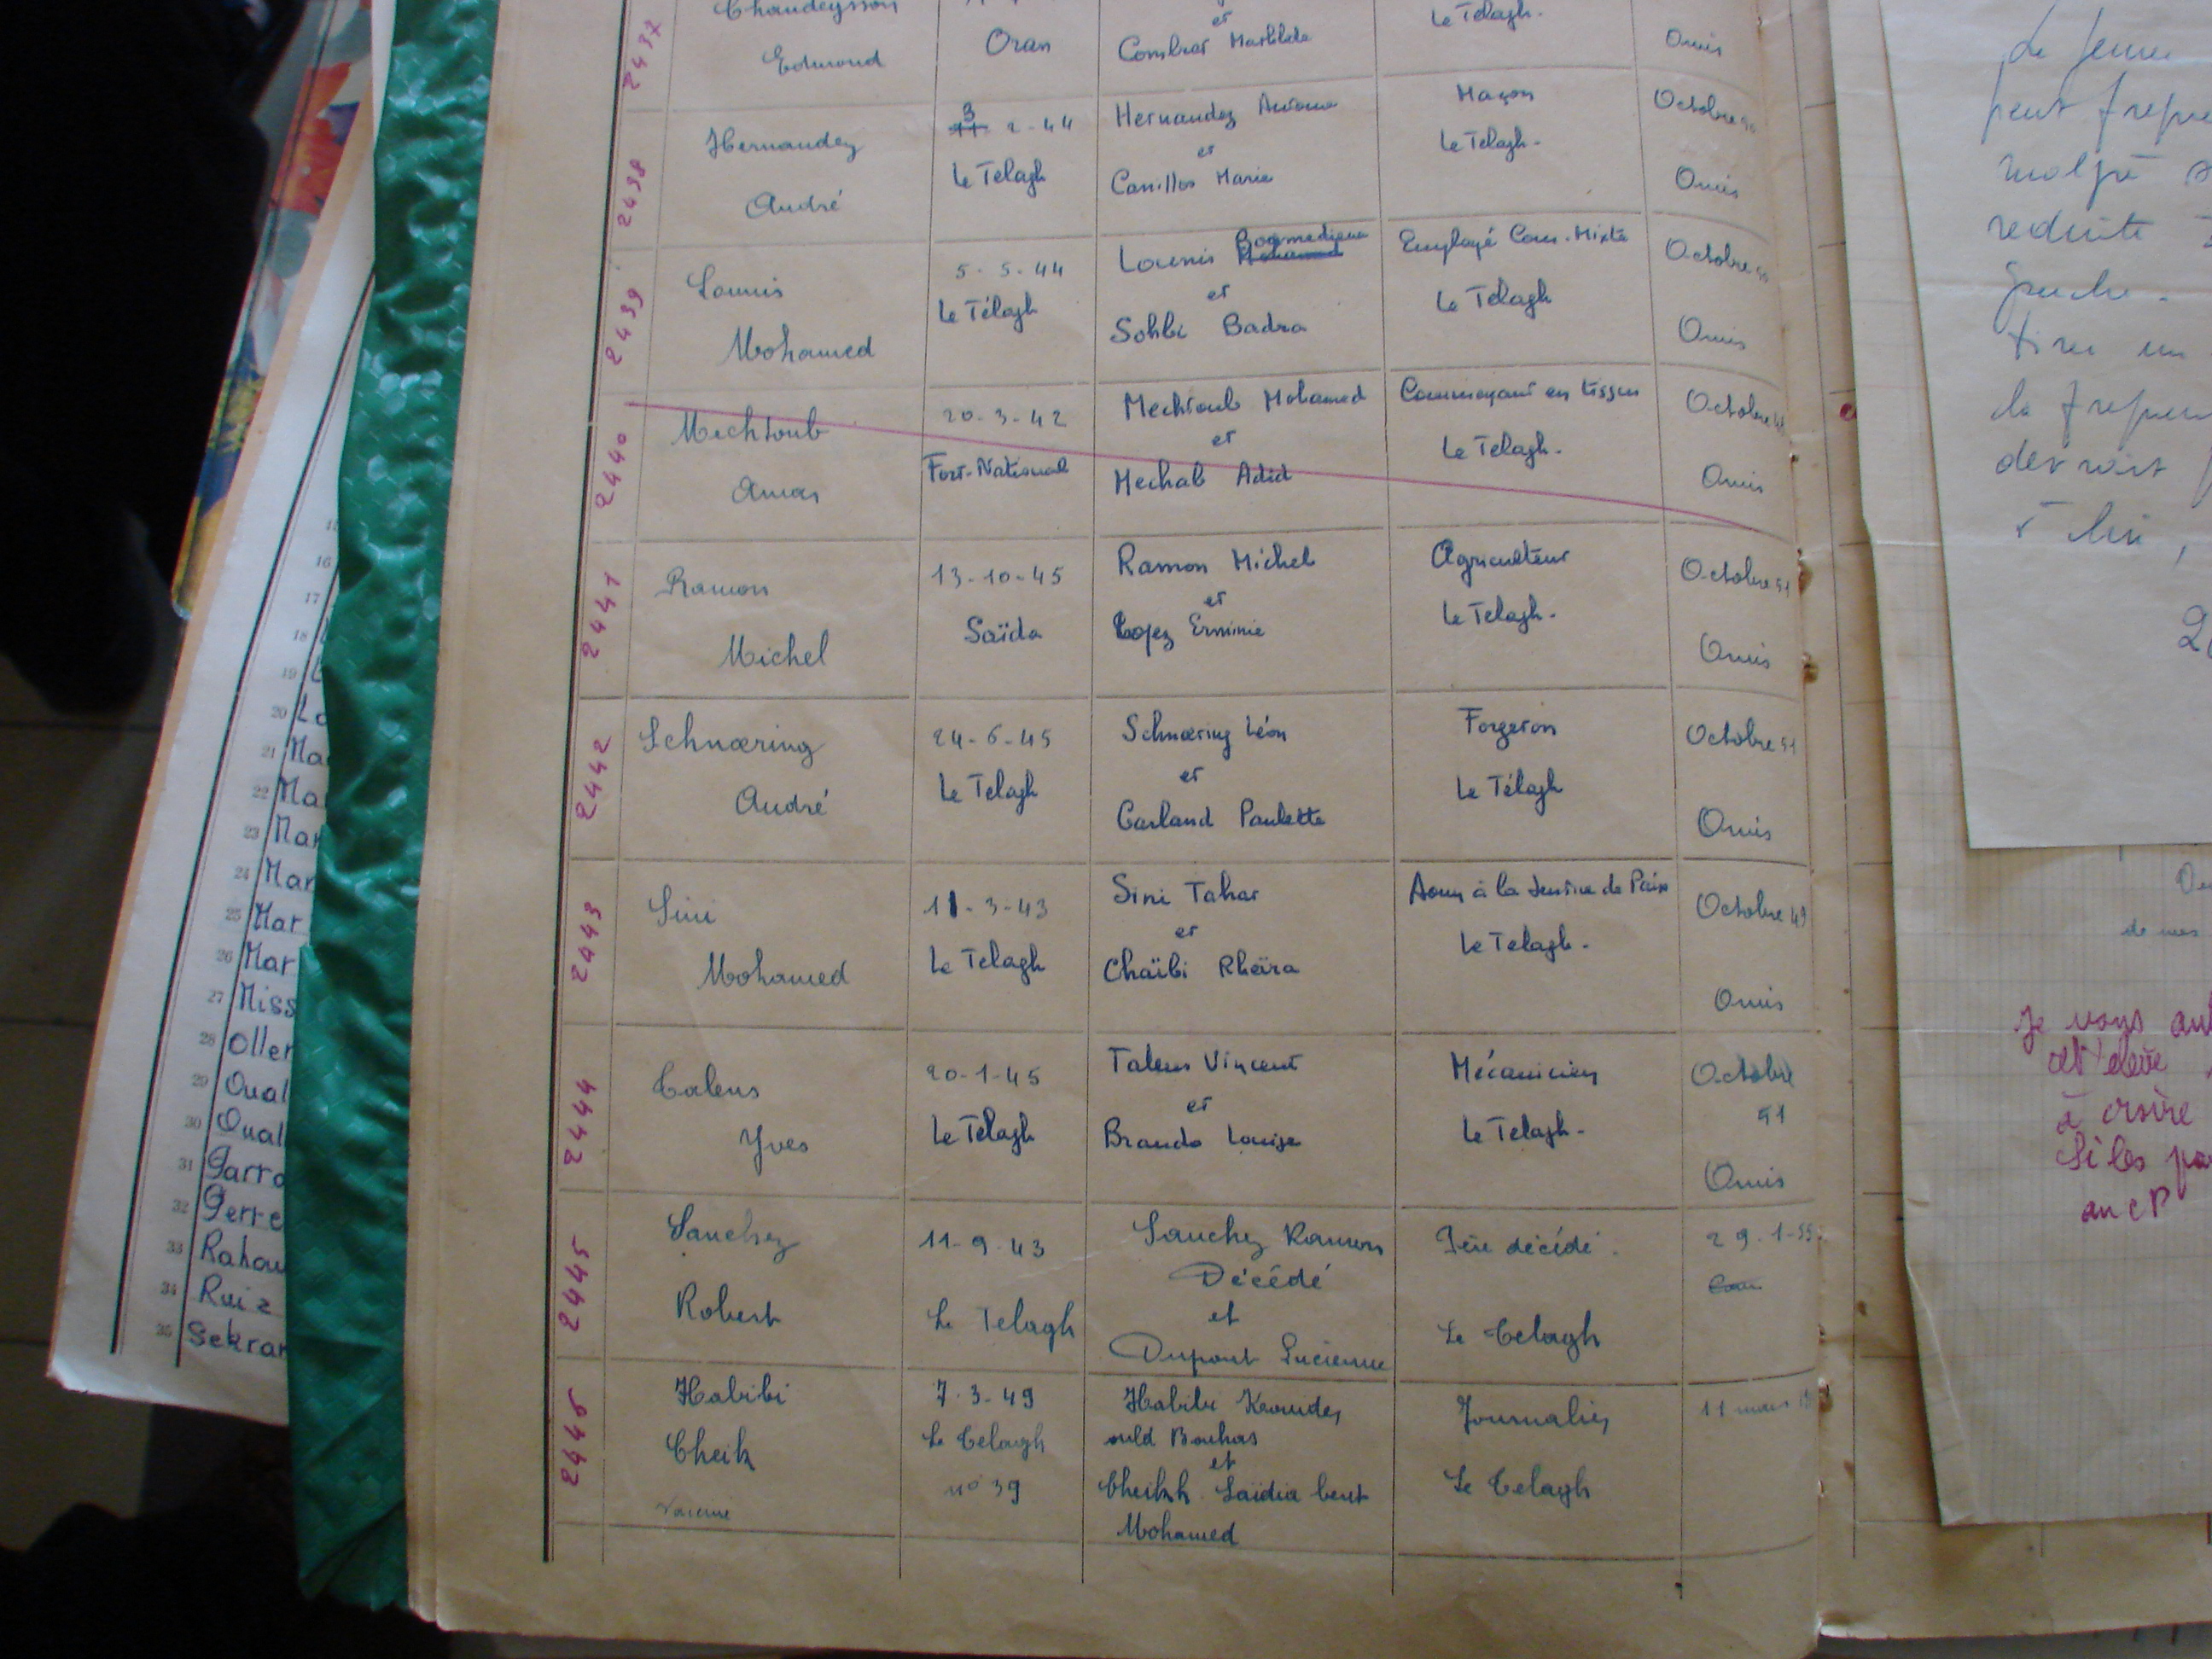 2437
Chaudeysson
Edmond
Oran
et
Combret Mathilde
Le Telagh.
Omis
2438
Hernandez
André
3
11 2-44
Le Telagh
Hernandez Antoine
et
Canillos Marie
Maçon
Le Telagh.
Octobre 50
Omis
2439
Lounis
Mohamed
5-5-44
Le Télagh
Lounis Boumediene
Mohamed
et
Sohbi Badra
Employé Com. Mixte
Le Telagh
Octobre 50
Omis
2440
Mechtoub
Amar
20-3-42
Fort-National
Mechtoub Mohamed
et
Mechab Adid
Commerçant en tissus
Le Telagh.
Octobre
Omis
2441
Ramon
Michel
13-10-45
Saïda
Ramon Michel
et
Lopez Erminie
Agriculteur
Le Telagh.
Octobre 51
Omis
2442
Schnœring
André
24-6-45
Le Telagh
Schnœring Léon
et
Garland Paulette
Forgeron
Le Télagh
Octobre 51
Omis
2443
Sini
Mohamed
11-3-43
Le Telagh
Sini Tahar
et
Chaïbi Kheïra
Aoun à la Justice de Paix
Le Telagh.
Octobre 49
Omis
2444
Talens
Yves
20-1-45
Le Telagh
Talens Vincent
et
Brando Louise
Mécanicien
Le Telagh.
Octobre
51
Omis
2445
Sanchez
Robert
11-9-43
Le Telagh
Sanchez Ramon
Décédé
et
Dupont Lucienne
Père décédé.
Le Telagh
29-1-55
2446
Habibi
Cheik
7.3.49
Le Telagh
no 39
Habibi Kaouider
ould Bouhas
et
Cheikh Saïdia bent
Mohamed
Journalier
Le Telagh
11 mars
16
17
18
19
20 Lo
21 Ma
22 Ma
23 Mar
24 Mar
25 Mar
26 Mar
27 Miss
28 Oller
29 Oual
30 Oual
31 Parra
32 Perre
33 Rahou
34 Ruiz
35 Sekrar
Le jeune
peut fréque
malgré
réduite
gauche.
tirer un
la fréquen
devrait
à lui,
de mes
Je vous
cet élève
à croire
Si les par
au CP